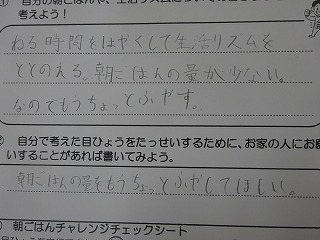 ① 自分の朝ごはんや、生活リズムについて
考えよう！
ねる時間をはやくして生活リズムを
ととのえる。朝ごはんの量が少ない。
なのでもうちょっとふやす。
② 自分で考えた目ひょうをたっせいするために、お家の人にお願
いすることがあれば書いてみよう。
朝ごはんの量をもうちょっとふやしてほしい。
朝ごはんチャレンジチェックシート